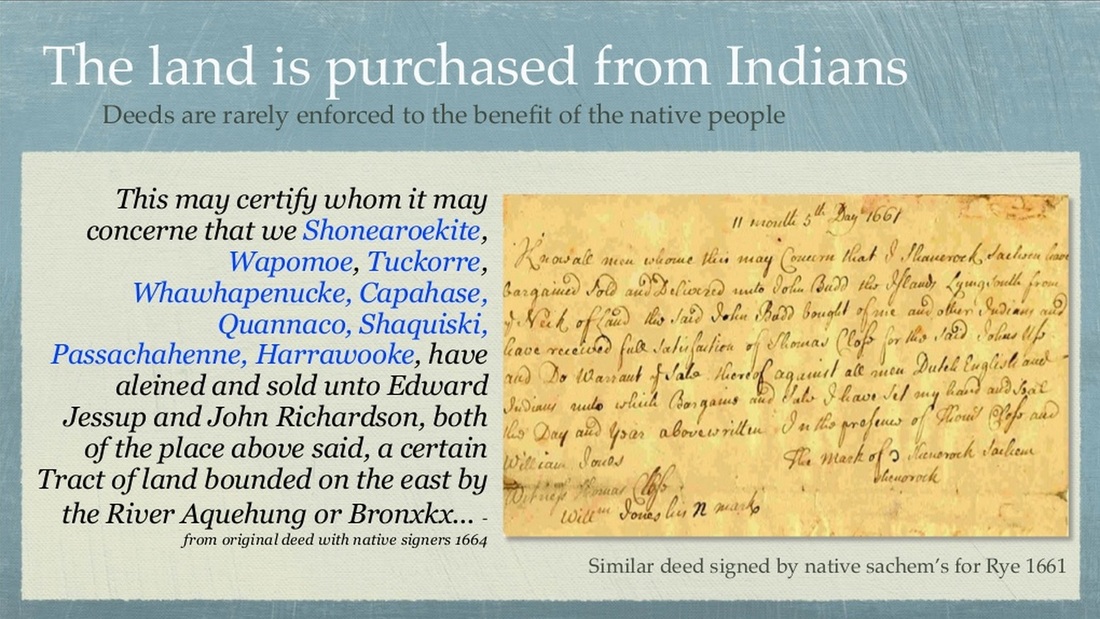 The land is purchased from Indians
Deeds are rarely enforced to the benefit of the native people
This may certify whom it may
concerne that we Shonearoekite,
Wapomoe, Tuckorre,
Whawhapenucke, Capahase,
Quannaco, Shaquiski,
Passachahenne, Harrawooke, have
aleined and sold unto Edward
Jessup and John Richardson, both
of the place above said, a certain
Tract of land bounded on the east by
the River Aquehung or Bronxkx... -
from original deed with native signers 1664
11 month 5th Day 1661
Know all men whome this may Concern that I Shanerock Sachem have
bargained Sold and Delivered unto John Budd the Islands Lying South from
y Neck of Land the Said John Budd bought of me and other Indians and
have received full Satisfaction of Thomas Close for the Said Johns Use
and Do Warrant y Sale thereof against all men Dutch English and
Indians unto which Bargaine and Sale I have Set my hand and Seal
the Day and Year above written In the presence of Thomas Close and
William Jones
The mark of Shenorock Sachem
Shenorock
Witness Thomas Close
Willm Jones his mark
Similar deed signed by native sachem's for Rye 1661